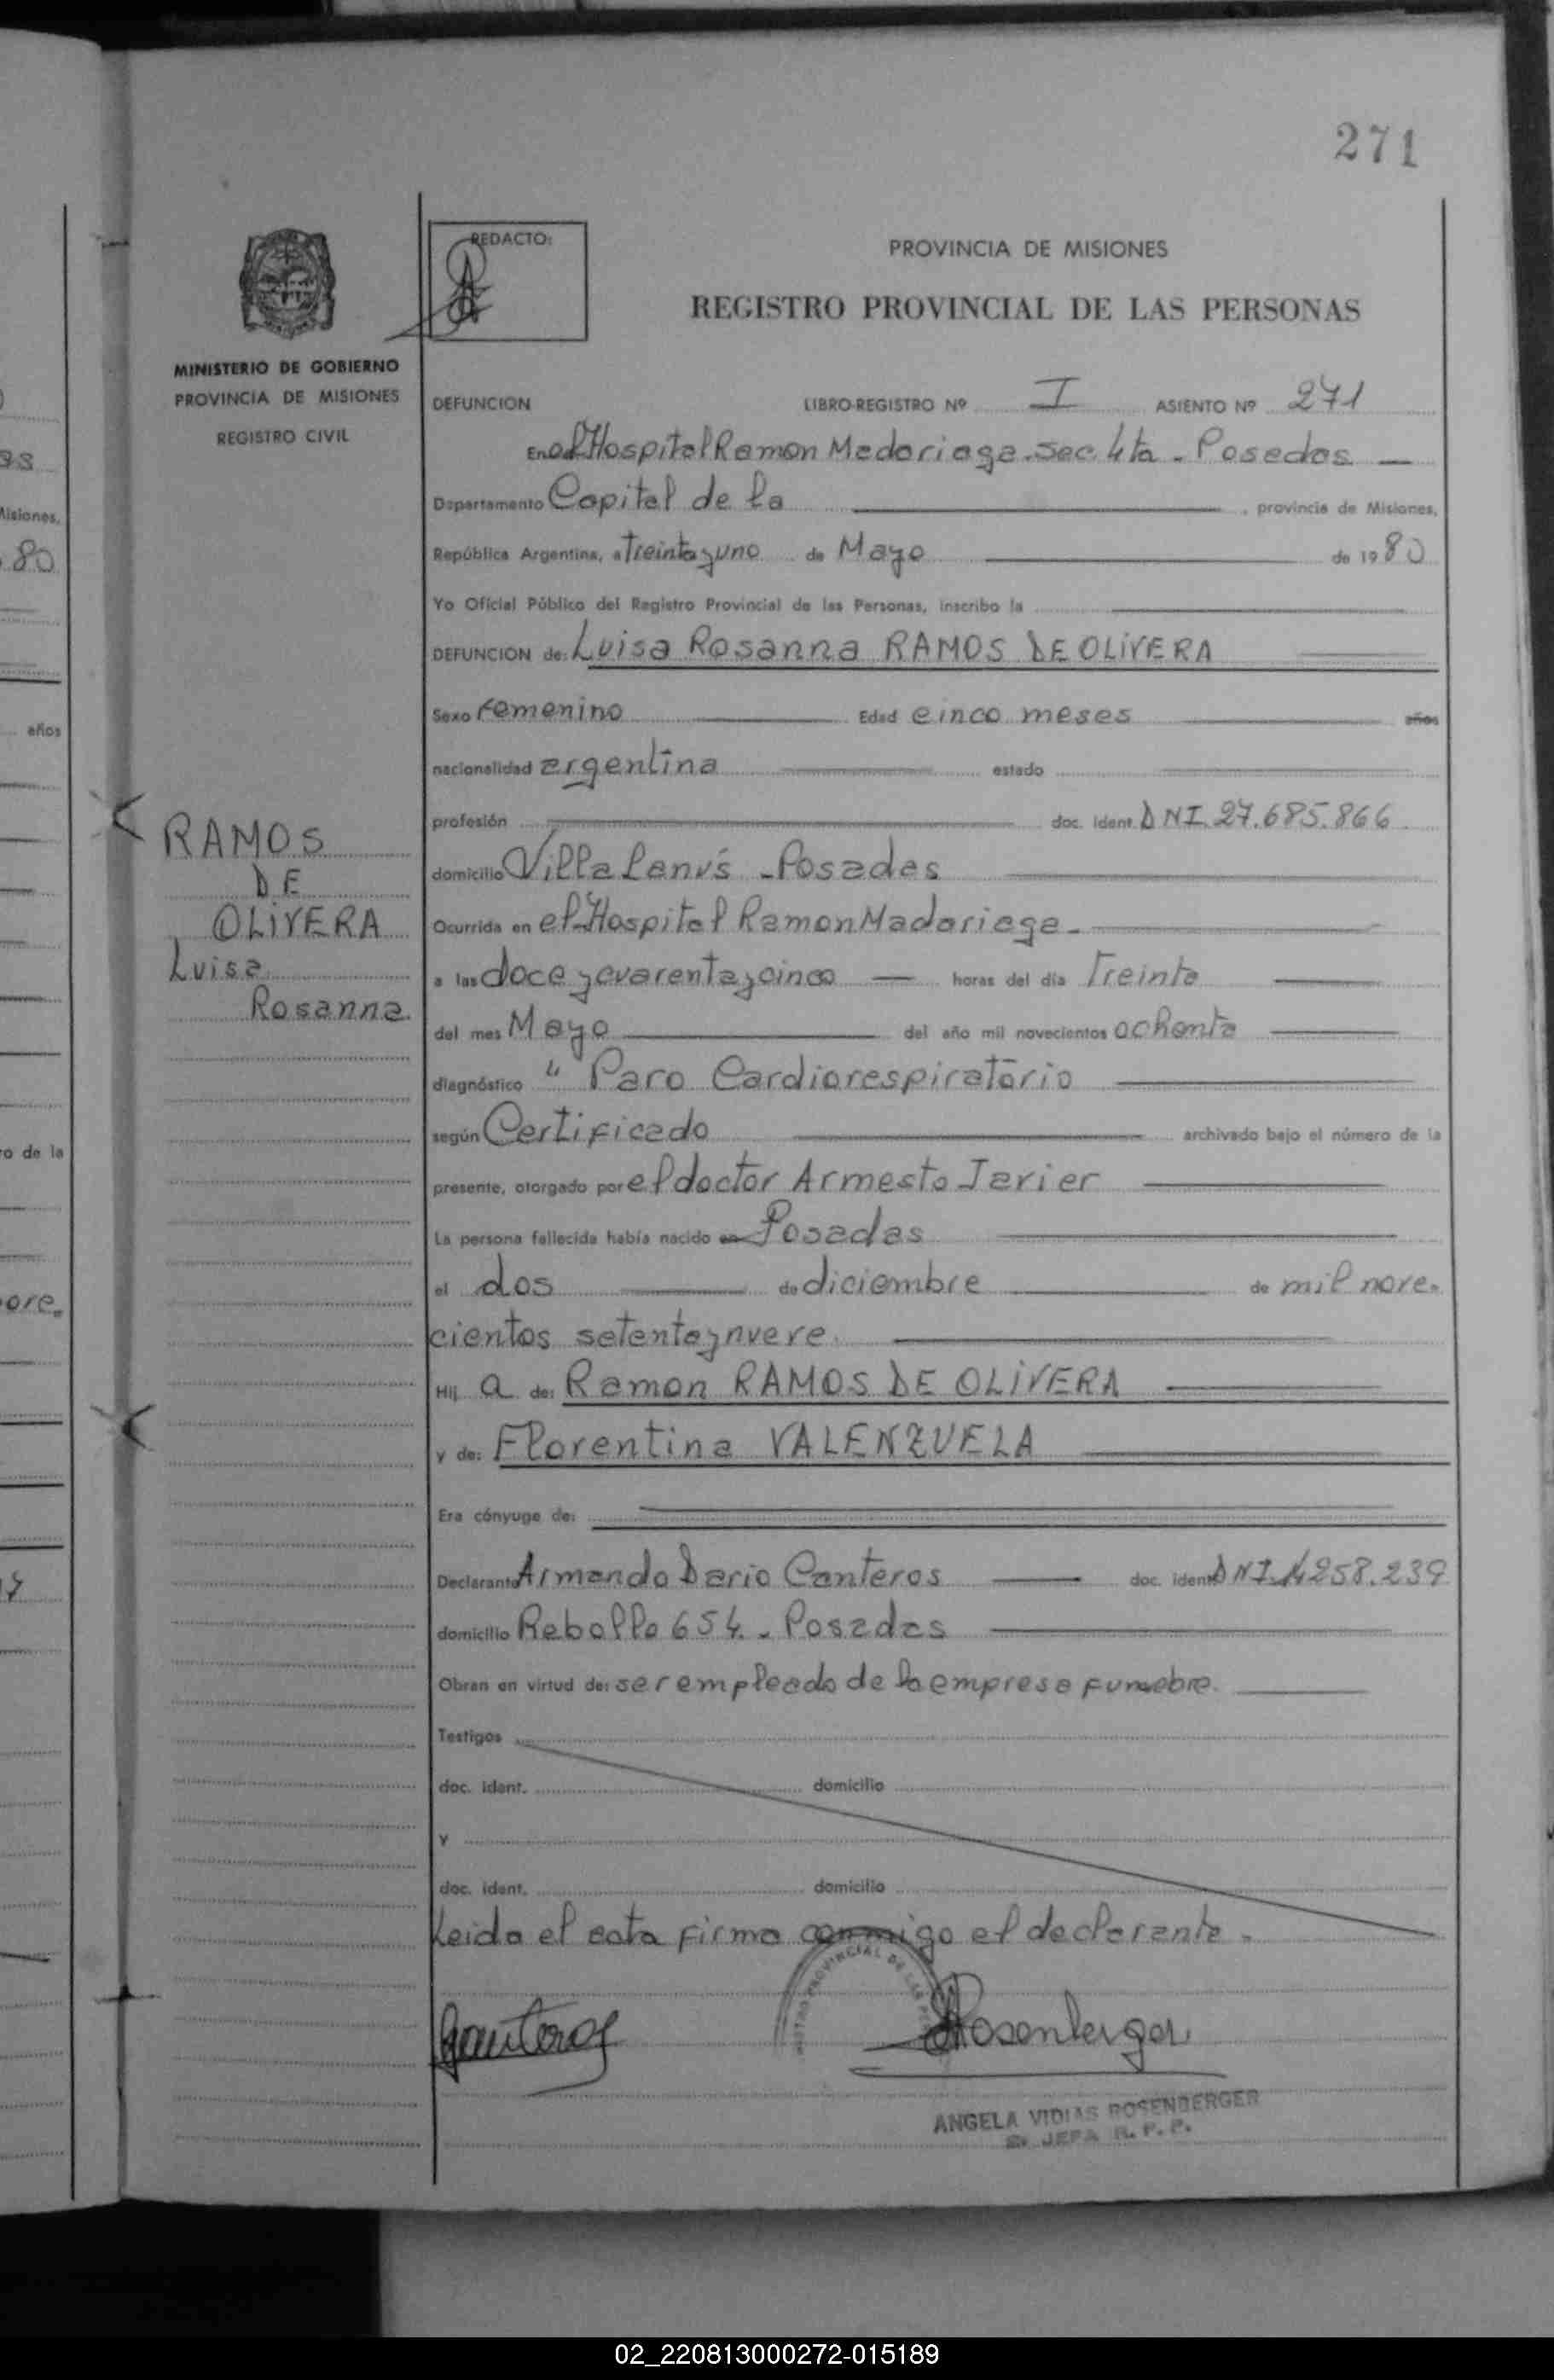 271
REDACTO:
PROVINCIA DE MISIONES
REGISTRO PROVINCIAL DE LAS PERSONAS
MINISTERIO DE GOBIERNO
PROVINCIA DE MISIONES
REGISTRO CIVIL
DEFUNCION LIBRO-REGISTRO Nº I ASIENTO Nº 271
En el Hospital Ramon Madariaga. Sec 4ta - Posadas
Departamento Capital de la , provincia de Misiones,
República Argentina, a Treinta y uno de Mayo de 1980
Yo Oficial Público del Registro Provincial de las Personas, inscribo la
DEFUNCION de: Luisa Rosanna RAMOS DE OLIVERA
Sexo Femenino Edad cinco meses años
nacionalidad argentina estado
profesión doc. ident. DNI. 27.685.866
domicilio Villa Lanús - Posadas
Ocurrida en el Hospital Ramon Madariaga.
a las doce y cuarenta y cinco horas del día Treinta
del mes Mayo del año mil novecientos ochenta
diagnóstico " Paro Cardiorespiratorio
según Certificado archivado bajo el número de la
presente, otorgado por el doctor Armesto Javier
La persona fallecida había nacido en Posadas
el dos de diciembre de mil nove-
cientos setenta y nueve.
Hij a de: Ramon RAMOS DE OLIVERA
y de: Florentina VALENZUELA
Era cónyuge de:
Declarante Armando Dario Canteros doc. ident. DNI. 14258.239
domicilio Rebollo 654. - Posadas
Obran en virtud de: ser empleado de la empresa funebre.
Testigos
doc. ident. domicilio
y
doc. ident. domicilio
Leida el acta firma conmigo el declarante.
RAMOS
DE
OLIVERA
Luisa
Rosanna.
Canteros
Rosenberger
ANGELA VIDIAS ROSENBERGER
JEFA R. P. P.
años
80
02_220813000272-015189